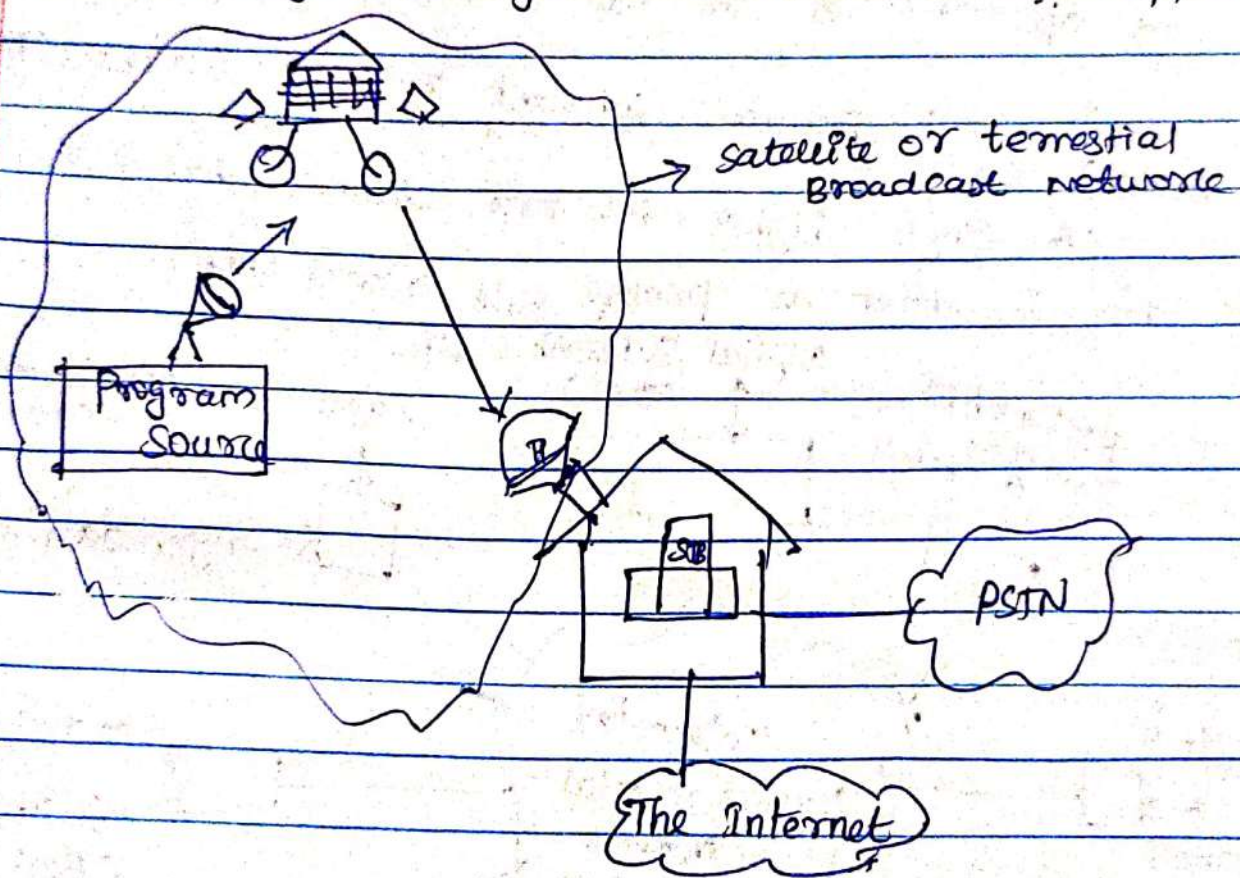 satellite or terrestial
Broadcast Network
Program
Source
STB
PSTN
The Internet